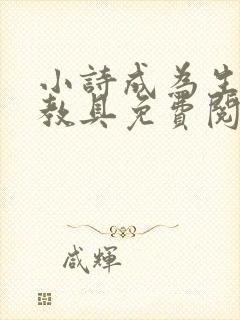 小詩成為生
教具免費閱
咸輝